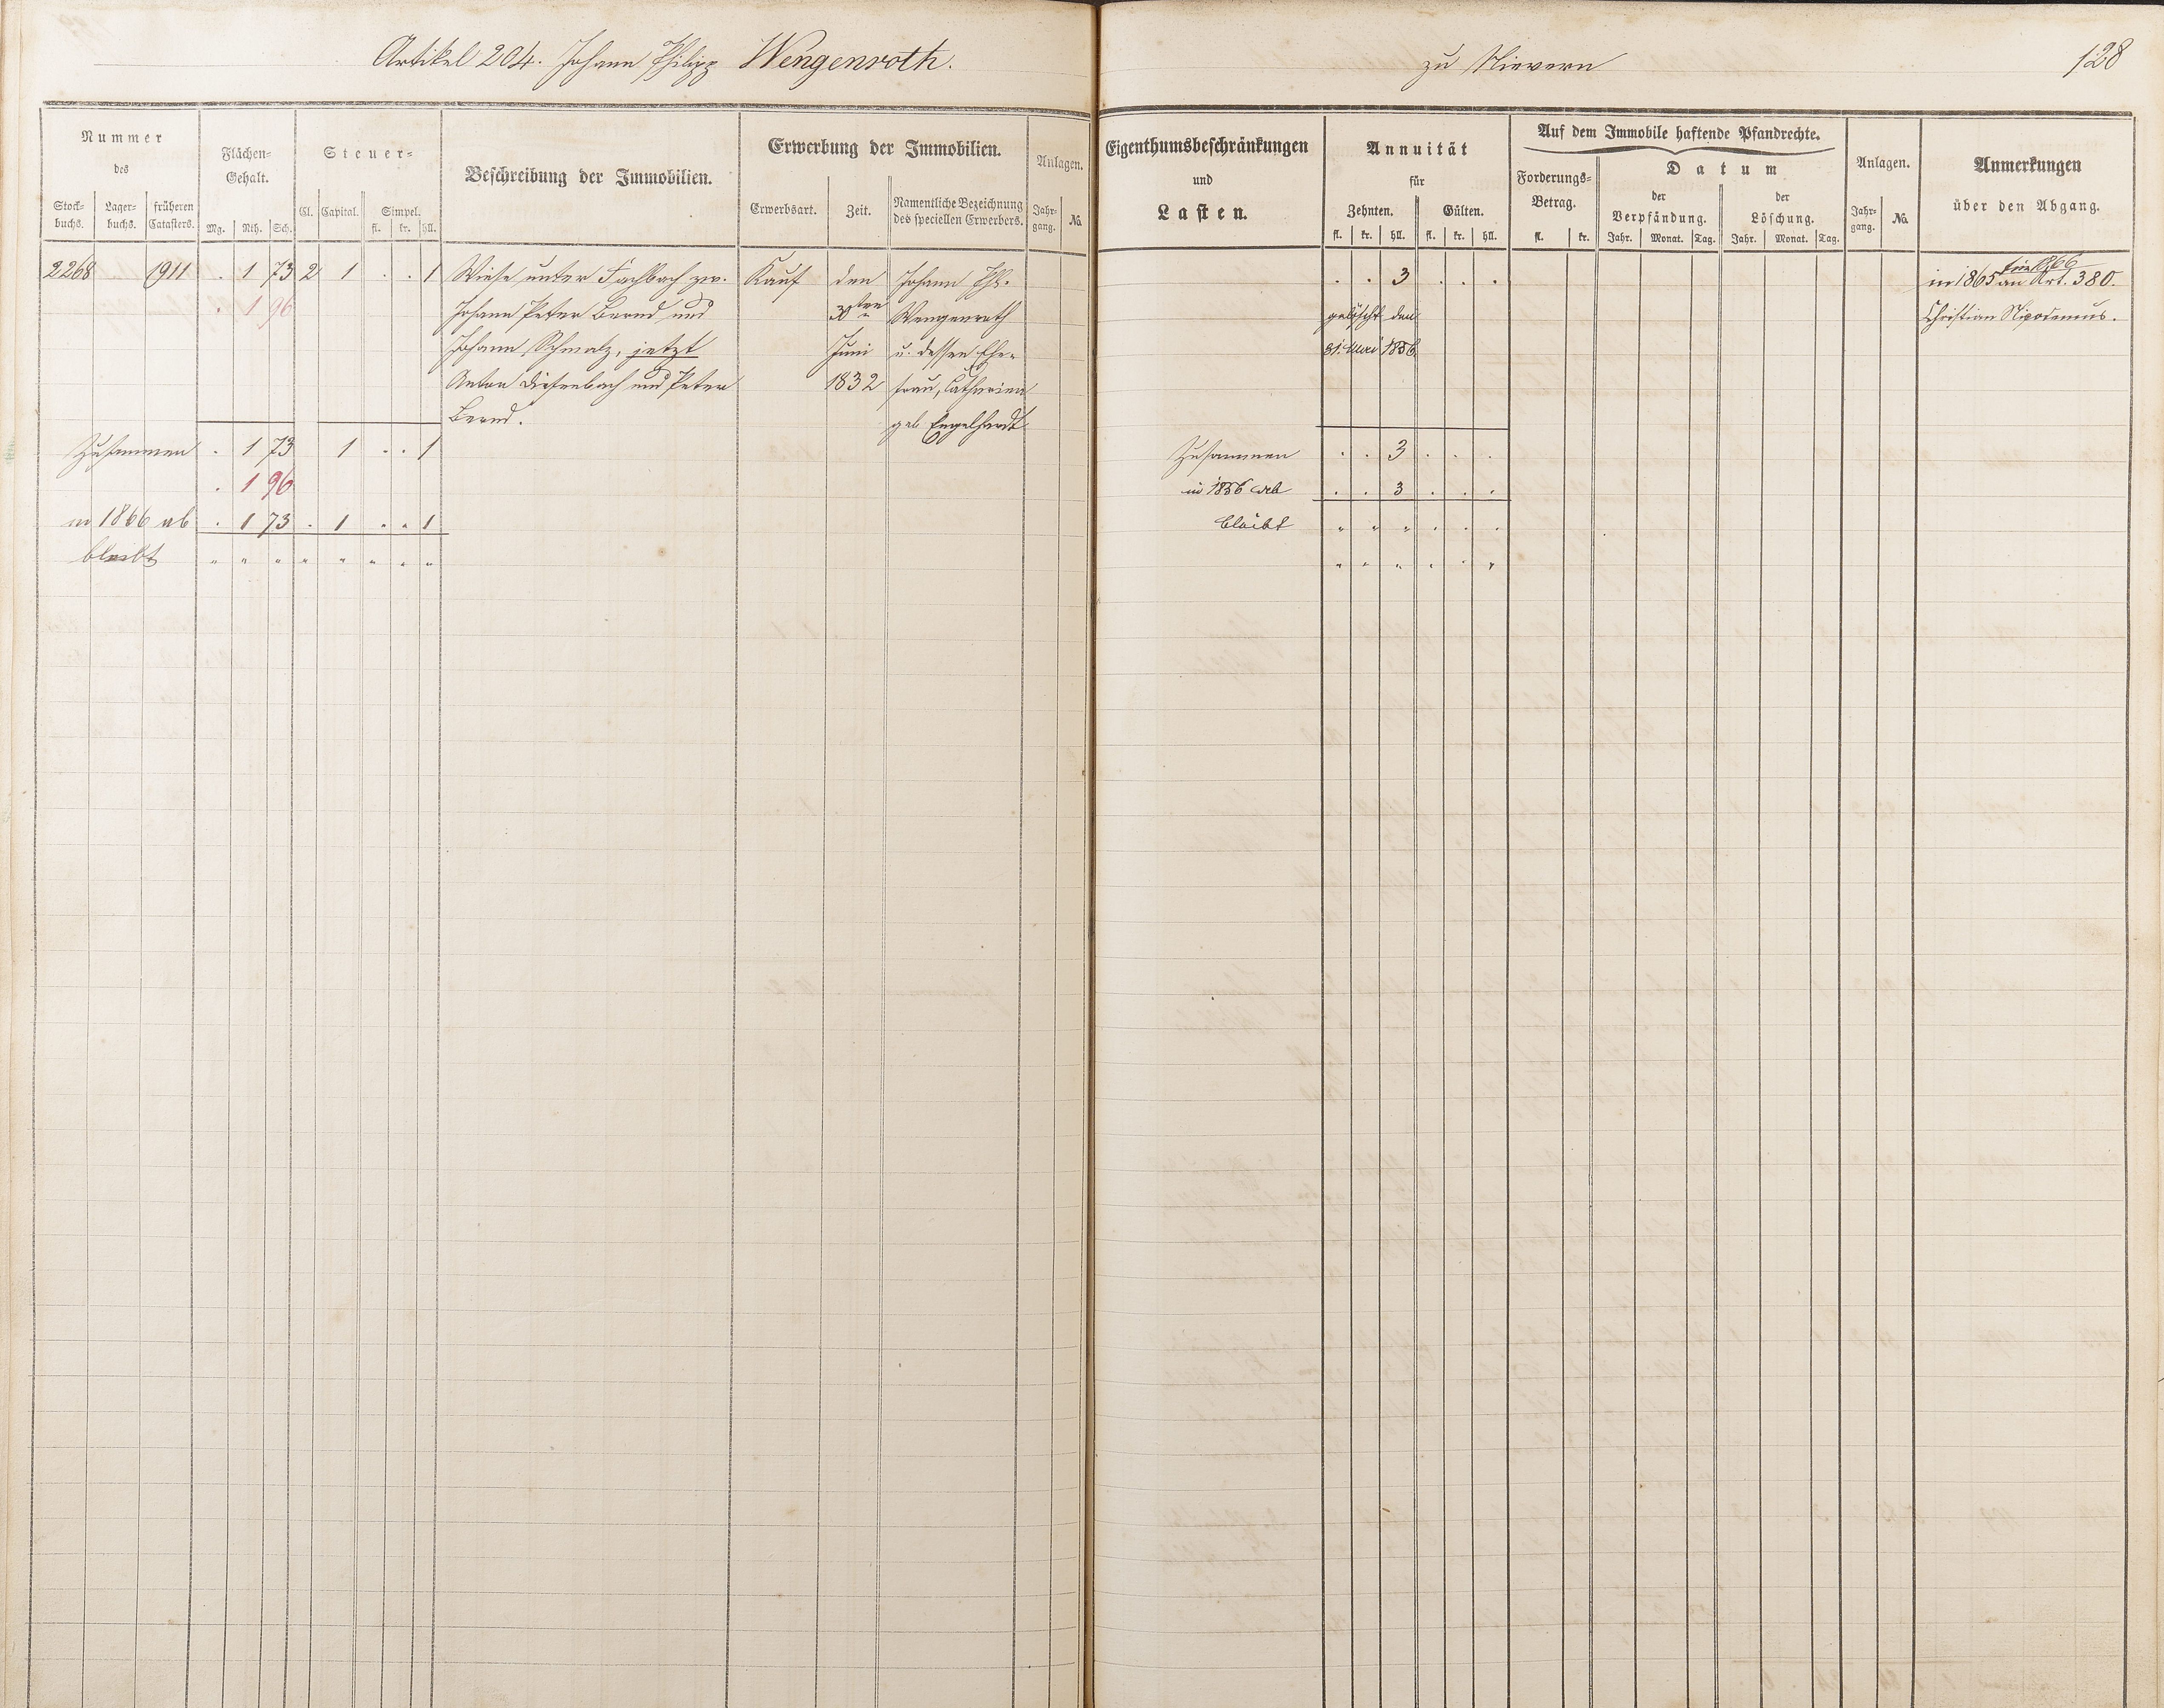 Artikel 204. Johann Philipp Wengenroth.
zu Nievern
128
Nummer
des
Stock-
buchs.
Lager-
buchs.
früheren
Catasters.
Flächen-
Gehalt.
Mg. Rth. Sch.
Steuer-
Cl. Capital. Simpel.
fl. kr. hll.
Beschreibung der Immobilien.
Erwerbung der Immobilien.
Erwerbsart. Zeit.
Namentliche Bezeichnung
des speciellen Erwerbers.
Anlagen.
Jahr-
gang.
No.
Eigenthumsbeschränkungen
und
Lasten.
Annuität
für
Zehnten. Gülten.
fl. kr. hll. fl. kr. hll.
Auf dem Immobile haftende Pfandrechte.
Forderungs-
Betrag.
fl. kr.
Datum
der
Verpfändung.
Jahr. Monat. Tag.
der
Löschung.
Jahr. Monat. Tag.
Anlagen.
Jahr-
gang.
No.
Anmerkungen
über den Abgang.
2268 1911 . 1 73 2 1 . . 1 Wiese unter Fachbach zw. Kauf den Johann Phl. . . 3 . . .
. 1 96 Johann Peter Bernd und 30ten Wengenroth gelöscht den
Johann Schmalz, jetzt Juni u. dessen Ehe- 31. 1856
Anton Diefenbach und Peter 1832 frau, Catharina
Bernd. geb Engelhardt
für 1866
in 1865 an Art. 380.
Christian
Zusammen . 1 73 1 . . 1 Zusammen . . 3 . . .
. 1 96 in 1856 ab . . 3 . . .
in 1866 ab . 1 73 . 1 . . 1 bleibt " " " . . .
bleibt " " " " " " " "